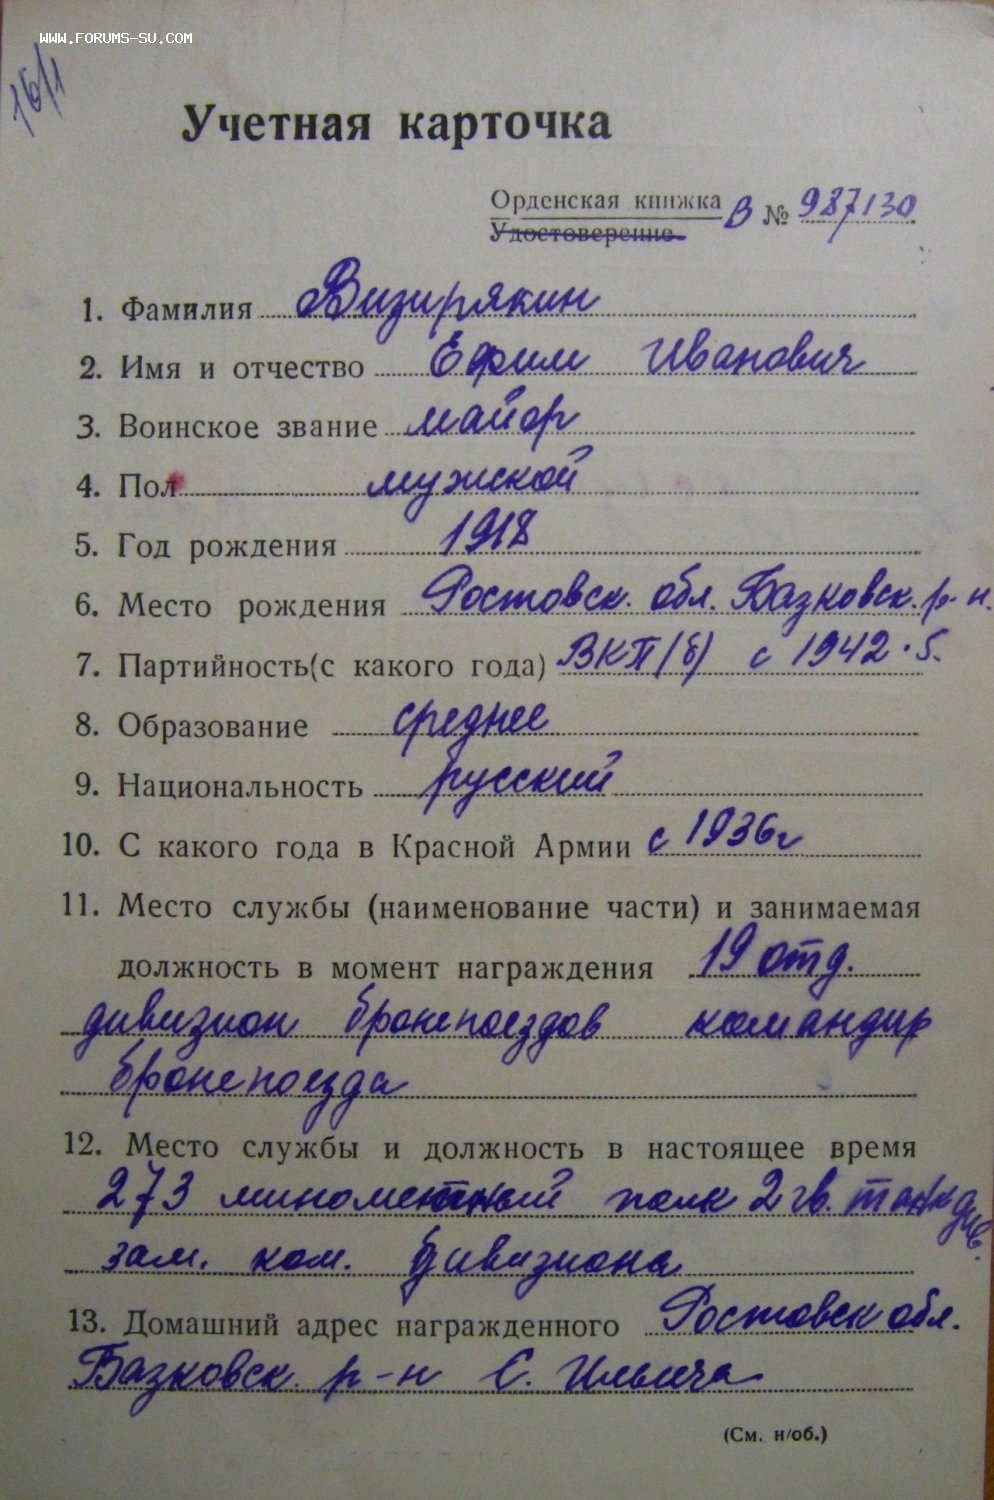 www.forums-su.com
16/1
Учетная карточка
Орденская книжка В № 987130
Удостоверение
1. Фамилия Визирякин
2. Имя и отчество Ефим Иванович
3. Воинское звание майор
4. Пол мужской
5. Год рождения 1918
6. Место рождения Ростовск. обл. Базковск. р-н.
7. Партийность(с какого года) ВКП(б) с 1942.5.
8. Образование среднее
9. Национальность русский
10. С какого года в Красной Армии с 1936г
11. Место службы (наименование части) и занимаемая
должность в момент награждения 19 отд.
дивизион бронепоездов командир
бронепоезда
12. Место службы и должность в настоящее время
273 минометный полк 2 гв. танк див.
зам. ком. дивизиона
13. Домашний адрес награжденного Ростовск обл.
Базковск. р-н С. Ильича
(См. н/об.)